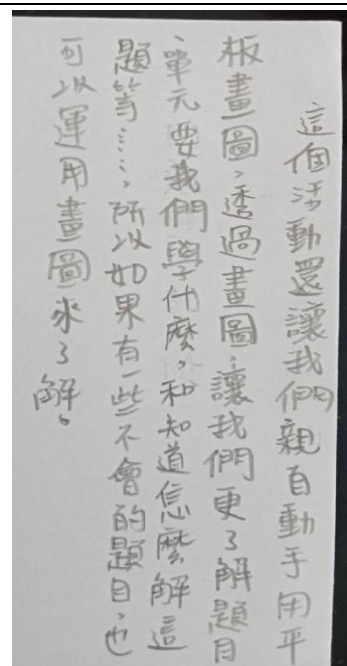 這個活動還讓我們親自動手用平
板畫圖,透過畫圖,讓我們更了解題目
、單元要我們學什麼,和知道怎麼解這
題等……,所以如果有一些不會的題目,也
可以運用畫圖來了解。